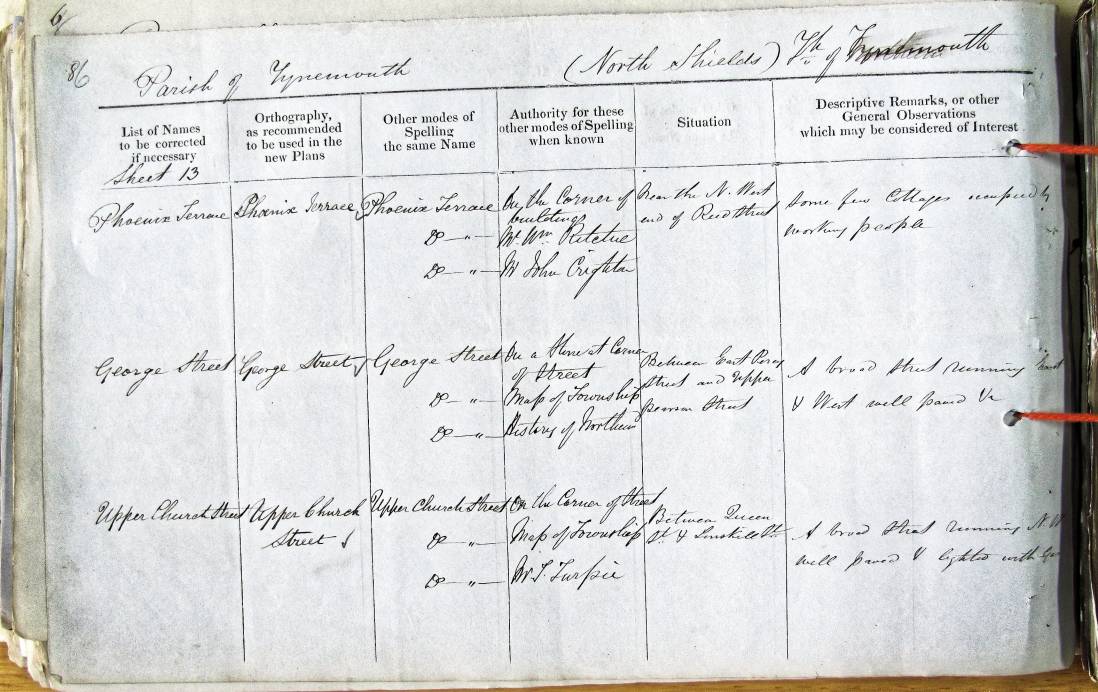 6
86
Parish of Tynemouth (North Shields) Th of Tynemouth
List of Names to be corrected if necessary
Orthography, as recommended to be used in the new Plans
Other modes of Spelling the same Name
Authority for these other modes of Spelling when known
Situation
Descriptive Remarks, or other General Observations which may be considered of Interest
Sheet 13
Phoenix Terrace
Phoenix Terrace
Phoenix Terrace
Do — " —
Do — " —
On the Corner of
buildings
Mr. Wm Ritchie
Mr John Crighton
Near the N. West
end of Reed Street
Some few Cottages occupied by
working people
George Street
George Street
George Street
Do — " —
Do — " —
On a Stone at Corner
of Street
Map of Township
History of Northum
Between East Percy
Street and Upper
Pearson Street
A broad street running East
& West well paved &c
Upper Church Street
Upper Church
Street
Upper Church Street
Do — " —
Do — " —
On the Corner of Street
Map of Township
Mr T. Turpie
Between Queen
St. & Linskill St.
A broad street running N.W
well paved & lighted with Gas